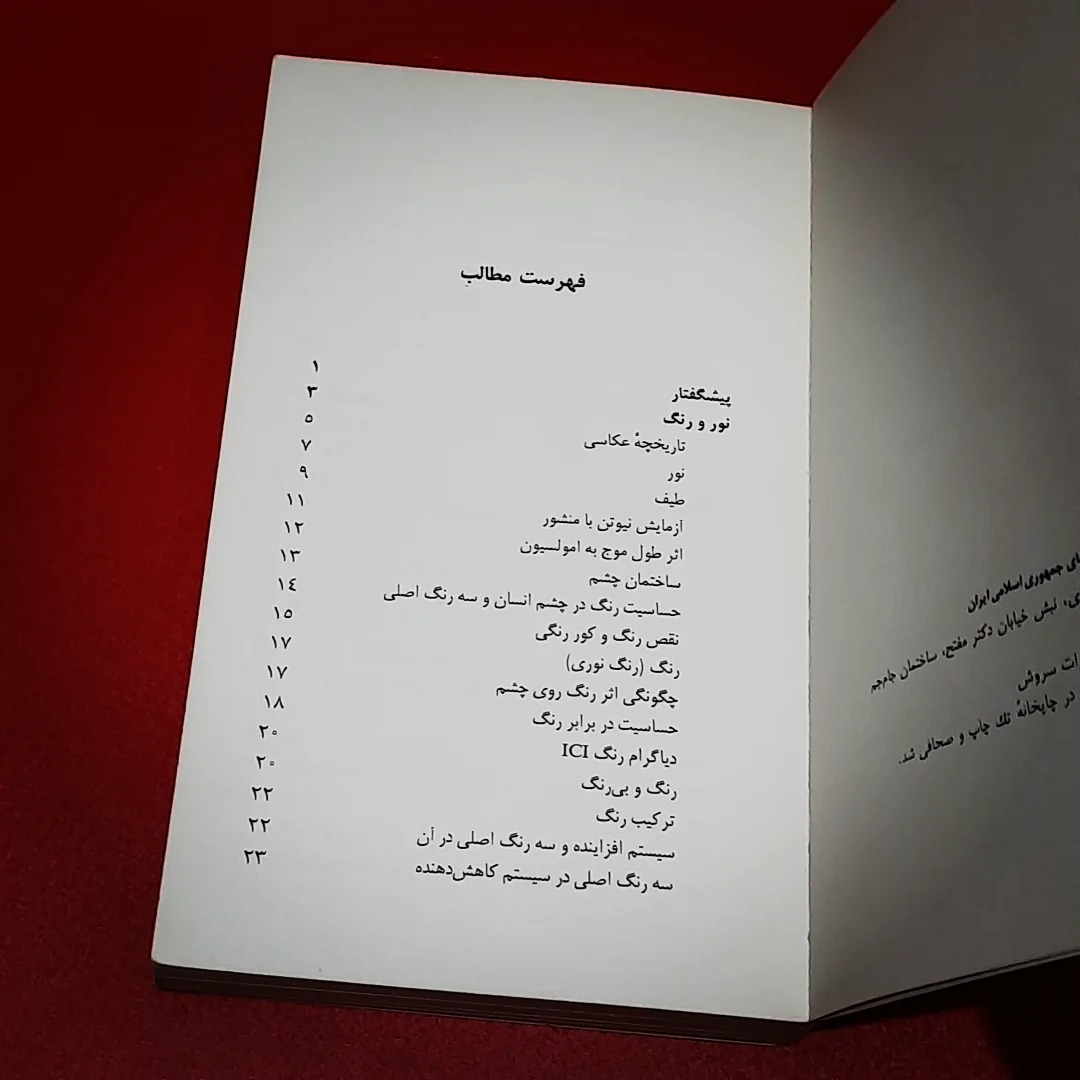 های جمهوری اسلامی ایران
نبش خیابان دکتر مفتح، ساختمان جام‌جم
سروش
در چاپخانهٔ تك چاپ و صحافی شد.
فهرست مطالب
پیشگفتار ۱
نور و رنگ ۳
تاریخچهٔ عکاسی ۵
نور ۷
طیف ۹
آزمایش نیوتن با منشور ۱۱
اثر طول موج به امولسیون ۱۲
ساختمان چشم ۱۳
حساسیت رنگ در چشم انسان و سه رنگ اصلی ۱۴
نقص رنگ و کور رنگی ۱۵
رنگ (رنگ نوری) ۱۷
چگونگی اثر رنگ روی چشم ۱۷
حساسیت در برابر رنگ ۱۸
دیاگرام رنگ ICI ۲۰
رنگ و بی‌رنگ ۲۰
ترکیب رنگ ۲۲
سیستم افزاینده و سه رنگ اصلی در آن ۲۲
سه رنگ اصلی در سیستم کاهش‌دهنده ۲۳